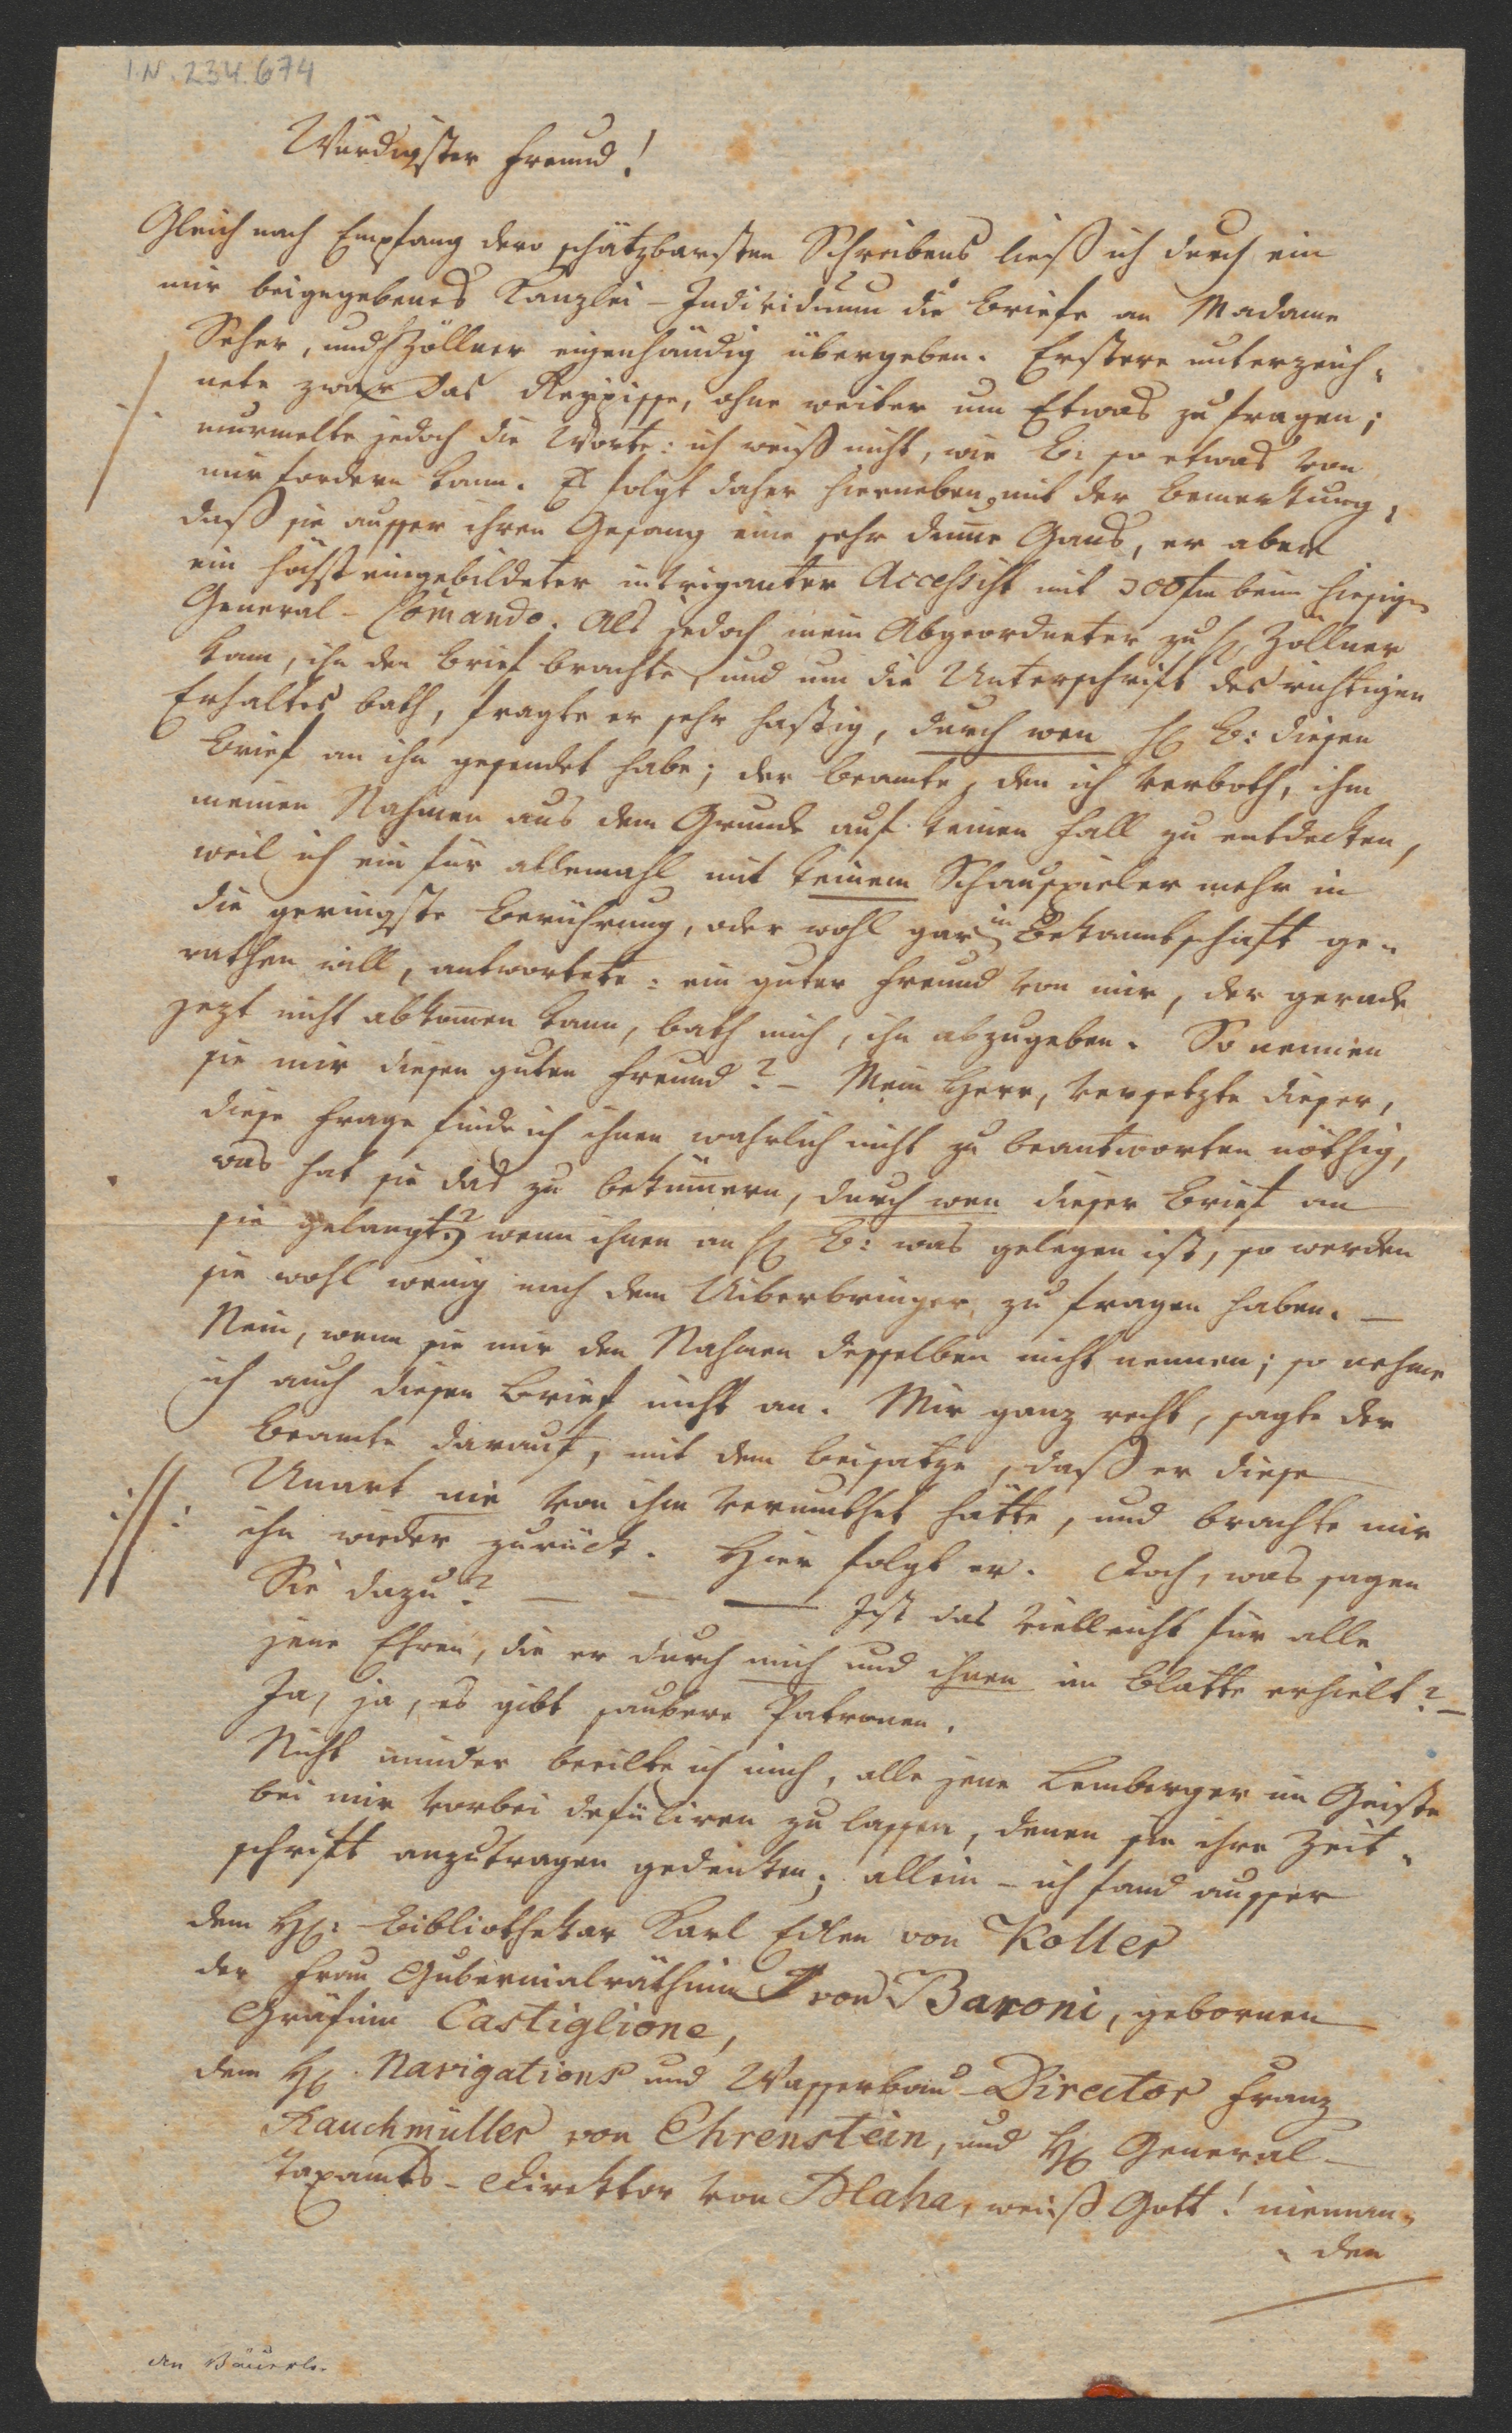 I.N. 234.674
Würdigster Freund!
Gleich nach Empfang dero schätzbarsten Schreibens ließ ich durch ein
mir beigegebenes Kanzlei-Individuum die Briefe an Madame
Seher, und Zöllner eigenhändig übergeben. Erstere unterzeich-
nete zwar das Rezepisse, ohne weiter um Etwas zu fragen;
murmelte jedoch die Worte: ich weiß nicht, wie B: so etwas von
mir fordern kann. Es folgt daher hierneben, mit der Bemerkung,
daß sie ausser ihren Gesang eine sehr dumme Gans, er aber
ein höchst eingebildeter intriganter Accessist mit 300 fm beim hiesigen
General-Com̄ando. Als jedoch mein Abgeordneter zu H Zöllner
kam, ihn den Brief brachte, und um die Unterschrift des richtigen
Erhaltes bath, fragte er sehr hastig, durch wen H B: diesen
Brief an ihn gesendet habe; der Beamte, den ich verboth, ihm
meinen Nahmen aus dem Grunde auf keinen Fall zu entdecken,
weil ich ein für allemahl mit keinem Schauspieler mehr in
die geringste Berührung, oder wohl gar in Bekanntschaft ge-
rathen will, antwortete: ein guter Freund von mir, der gerade
jezt nicht abkom̄en kann, bath mich, ihn abzugeben. So nennen
sie mir diesen guten Freund? – Mein Herr, versetzte dieser,
diese Frage finde ich ihnen wahrlich nicht zu beantworten nöthig,
was hat sie das zu beküm̄ern, durch wen dieser Brief an
sie gelangt? wenn ihnen an H B: was gelegen ist, so werden
sie wohl wenig nach dem Uiberbringer zu fragen haben. –
Nein, wenn sie mir den Nahmen desselben nicht nennen; so nehme
ich auch diesen Brief nicht an. Mir ganz recht, sagte der
Beamte darauf, mit dem Beisatze, daß er diese
Unart nie von ihm vermuthet hätte, und brachte mir
ihn wieder zurück. Hier folgt er. Doch, was sagen
Sie dazu? – – – Ist das vielleicht für alle
jene Ehren, die er durch mich und ihnen im Blatte erhielt? –
Ja, ja, es gibt saubere Patronen.
Nicht minder beeilte ich mich, alle jene Lemberger im Geiste
bei mir vorbei defiliren zu lassen, denen sie ihre Zeit-
schrift anzutragen gedenken; allein – ich fand ausser
dem H: Bibliothekar Karl Edlen von Koller
der Frau Gubernialräthinn von Baroni, gebornen
Gräfinn Castiglione,
dem H Navigations und Wasserbau-Director Franz
Rauchmüller von Ehrenstein, und H General-
Taxamts-Direktor von Blaha, weiß Gott! nieman-
den
An Bäuerle.